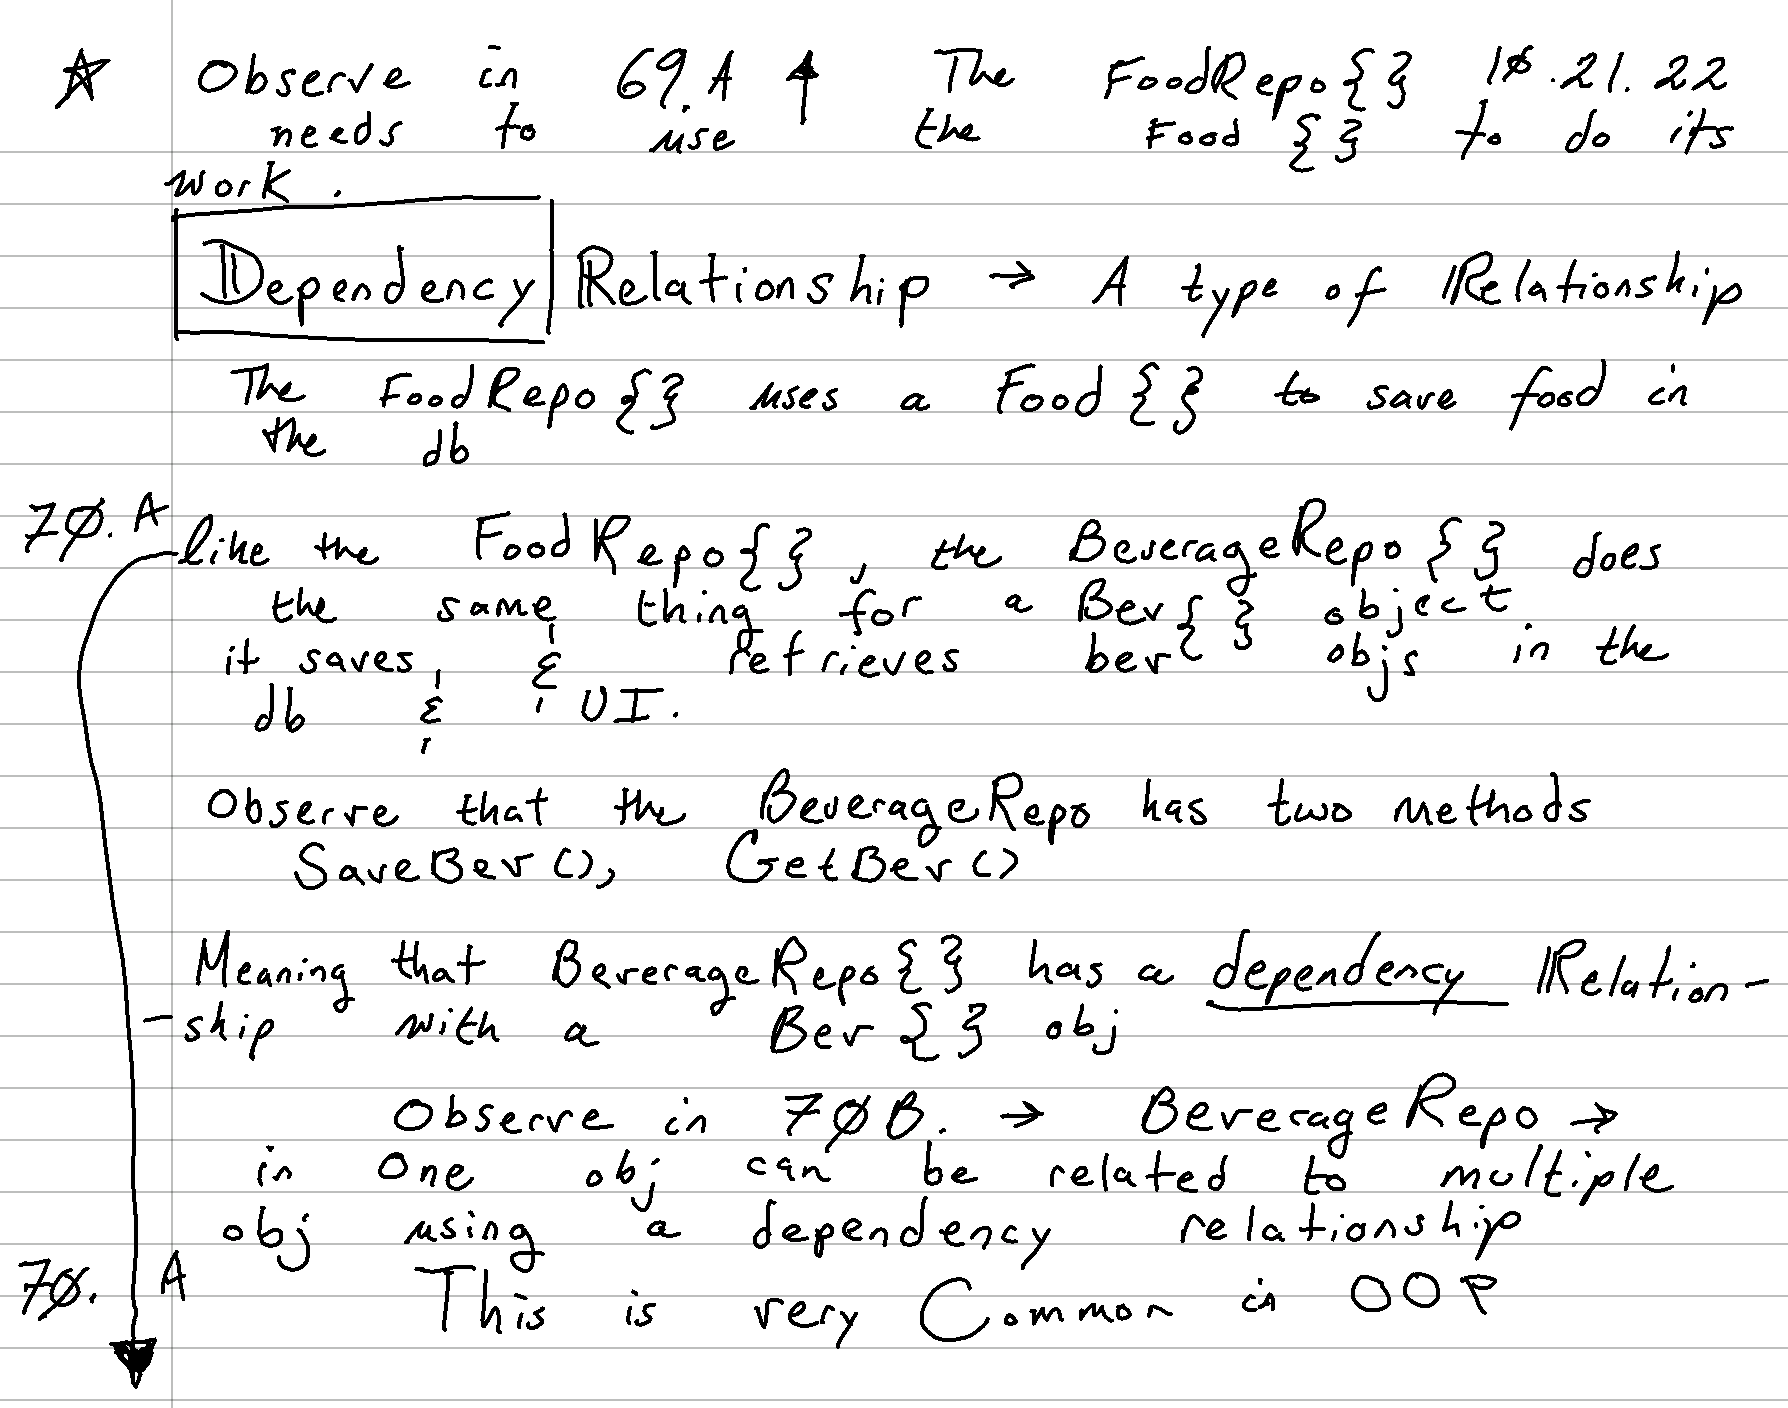 ☆ Observe in 69.A ↑ The FoodRepo{} 10.21.22
needs to use the Food {} to do its
work.
Dependency Relationship → A type of Relationship
The FoodRepo{} uses a Food{} to save food in
the db
70.A
like the FoodRepo{}, the BeverageRepo{} does
the same thing for a Bev{} object
it saves, & retrieves bev objs in the
db & UI.
Observe that the BeverageRepo has two methods
SaveBev(), GetBev()
Meaning that BeverageRepo{} has a dependency Relation-
-ship with a Bev{} obj
Observe in 70B. → BeverageRepo →
in one obj can be related to multiple
obj using a dependency relationship
70. A This is very Common in OOP